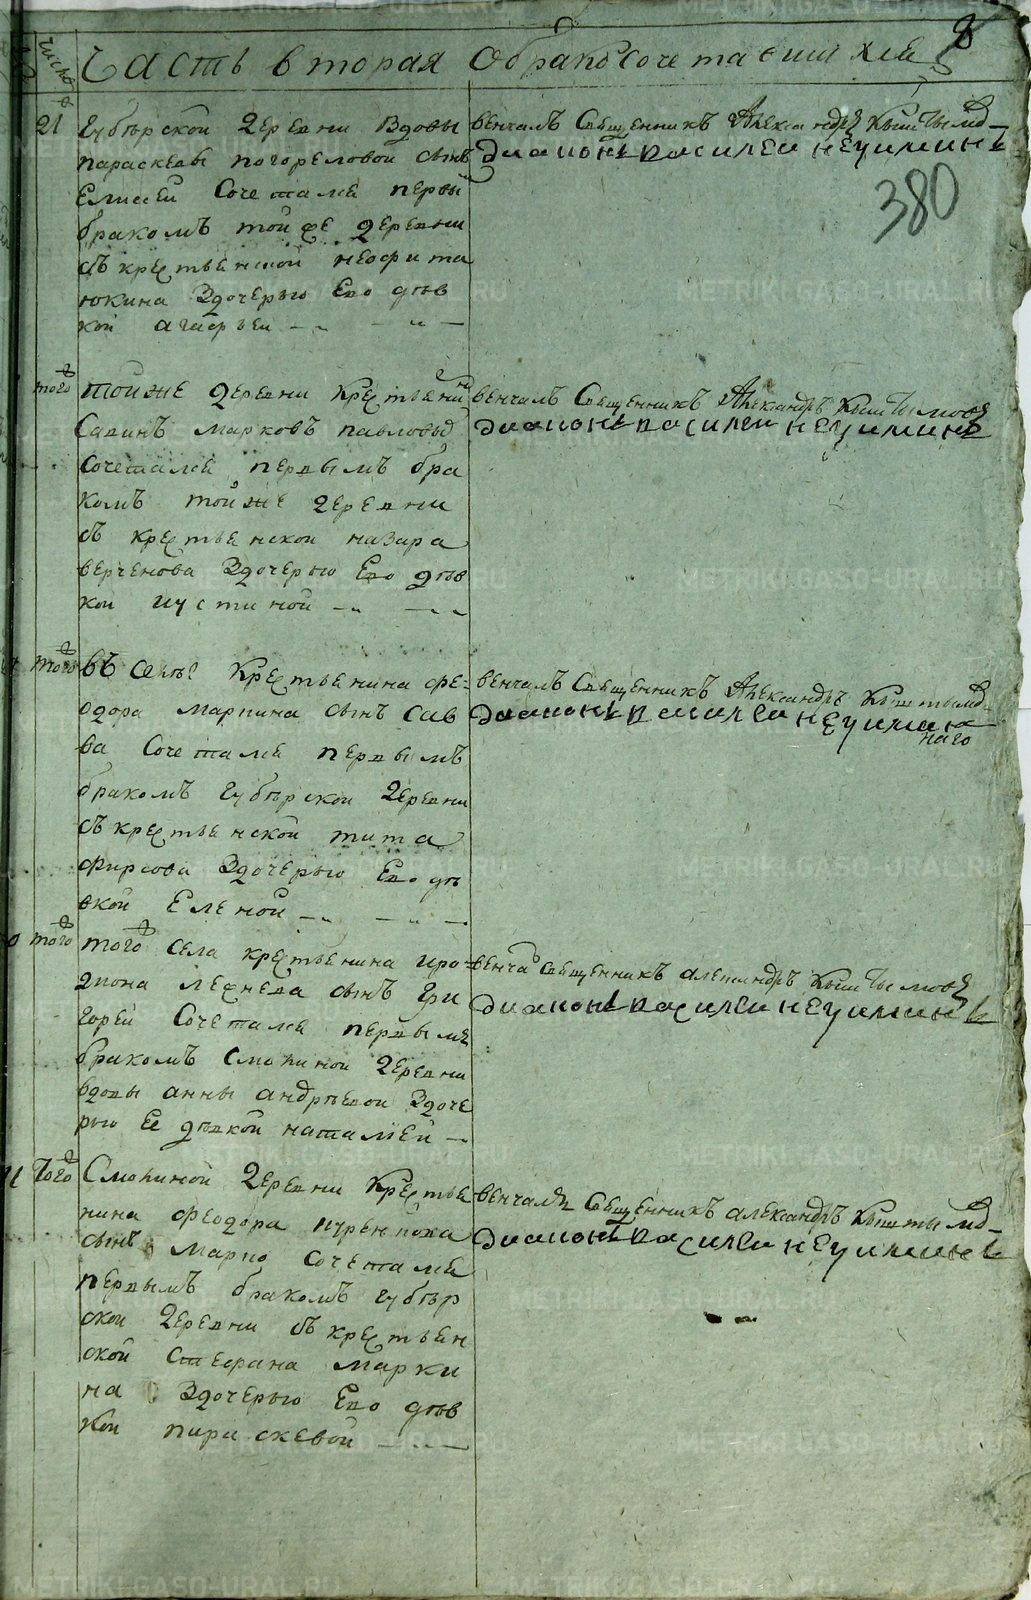 число
Часть вторая О бракосочетавшихся
8
380
21
Губѣрской деревни вдовы
параскевы погореловой сынъ
Елисей Сочетался первымъ
бракомъ той же деревни
съ крестьенской неофита
юкина здочерью Ево дѣв
кой агафьеи
венчалъ Священникъ Александръ Кыштымов
диаконъ василеи неуиминъ
того
той же деревни Крестьенинъ
Савинъ Марковъ павловъ
Сочетался первымъ бра
комъ той же деревни
съ крестьенской назара
верченова здочерью Ево дѣв
кой иустиной
венчалъ Священникъ Александръ Кыштымовъ
диаконъ василеи неуиминъ
того
въ селѣ Крестьенина фе
одора марпина сынъ сав
ва Сочетался первымъ
бракомъ губѣрской деревни
съ крестьенской тита
фирсова здочерью Ево дѣ
вкой Еленой
венчалъ Священникъ Александръ Кыштымов
диаконъ василеи неуимин
того
того села крестьенина иро
диона лехнева сынъ гри
горей Сочетался первымъ
бракомъ Смолиной деревни
вдовы анны андрѣевой здоче
рью Ее дѣвкой наталией
венча священникъ александръ Кыштымовъ
диаконъ василеи неуиминъ
того
Смолиной деревни Крестье
нина феодора
сынъ Марко сочетался
первымъ бракомъ губѣр
ской деревни съ крестьен
ской стефана марки
на здочерью Ево дѣв
кой параскевой
венчалъ Священникъ александръ Кыштымов
диаконъ василеи неуиминъ
METRIKI-GASO-URAL.RU